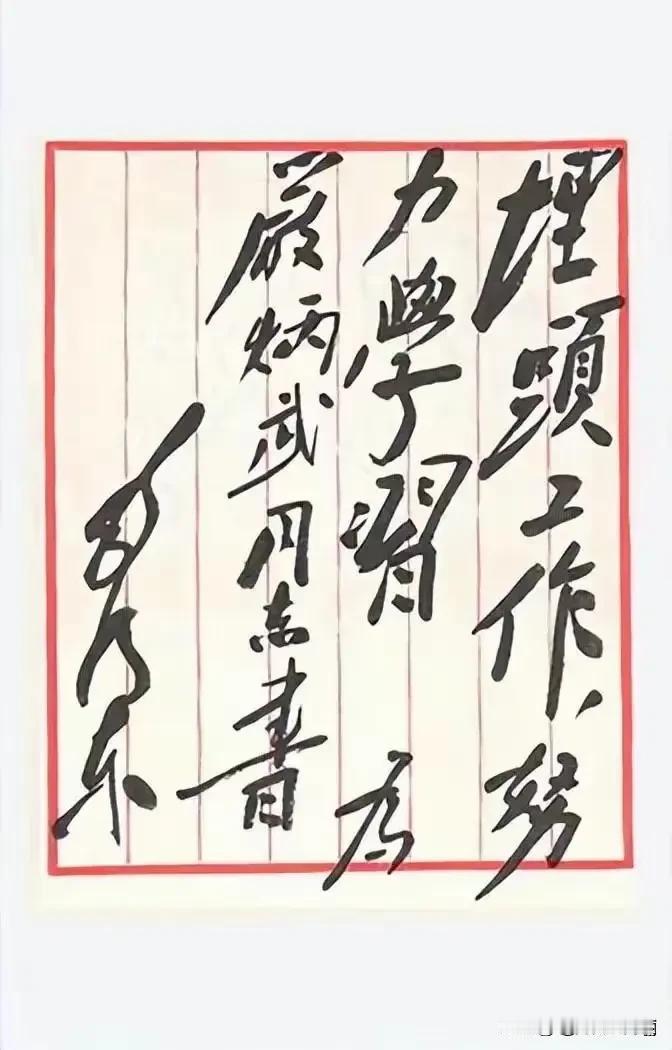 埋頭工作，努
力學習 為
嚴炳武同志書
毛澤東